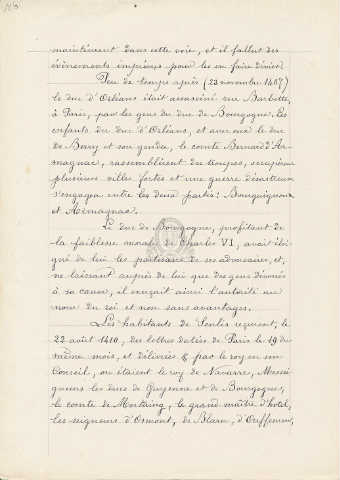 maintenaient dans cette voie, et il fallut des
évènements imprévus pour les en faire dévier.
Peu de temps après (23 novembre 1407)
le duc d'Orléans était assassiné rue Barbette,
à Paris, par les gens du duc de Bourgogne. Les
enfants du duc d'Orléans, et avec eux le duc
de Berry et son gendre, le comte Bernard d'Ar-
magnac, rassemblèrent des troupes, occupèrent
plusieurs villes fortes et une guerre désastreuse
s'engagea entre les deux partis: Bourguignons
et Armagnacs.
Le duc de Bourgogne, profitant de
la faiblesse morale de Charles VI, avait éloi-
gné de lui les partisans de ses adversaires et,
ne laissant auprès de lui que des gens dévoués
à sa cause, il exerçait ainsi l'autorité au
nom du roi et non sans avantages.
Les habitants de Senlis reçurent, le
22 août 1410, des lettres datées de Paris le 19 du
même mois, et délivrées par le roy en son
Conseil, ou étaient le roy de Navarre, Messei-
gneurs les ducs de Guyenne et de Bourgogne,
le comte de Mortaing, le grand maître d'hôtel,
les seigneurs d'Osmont, de Blaru, d'Offemont,